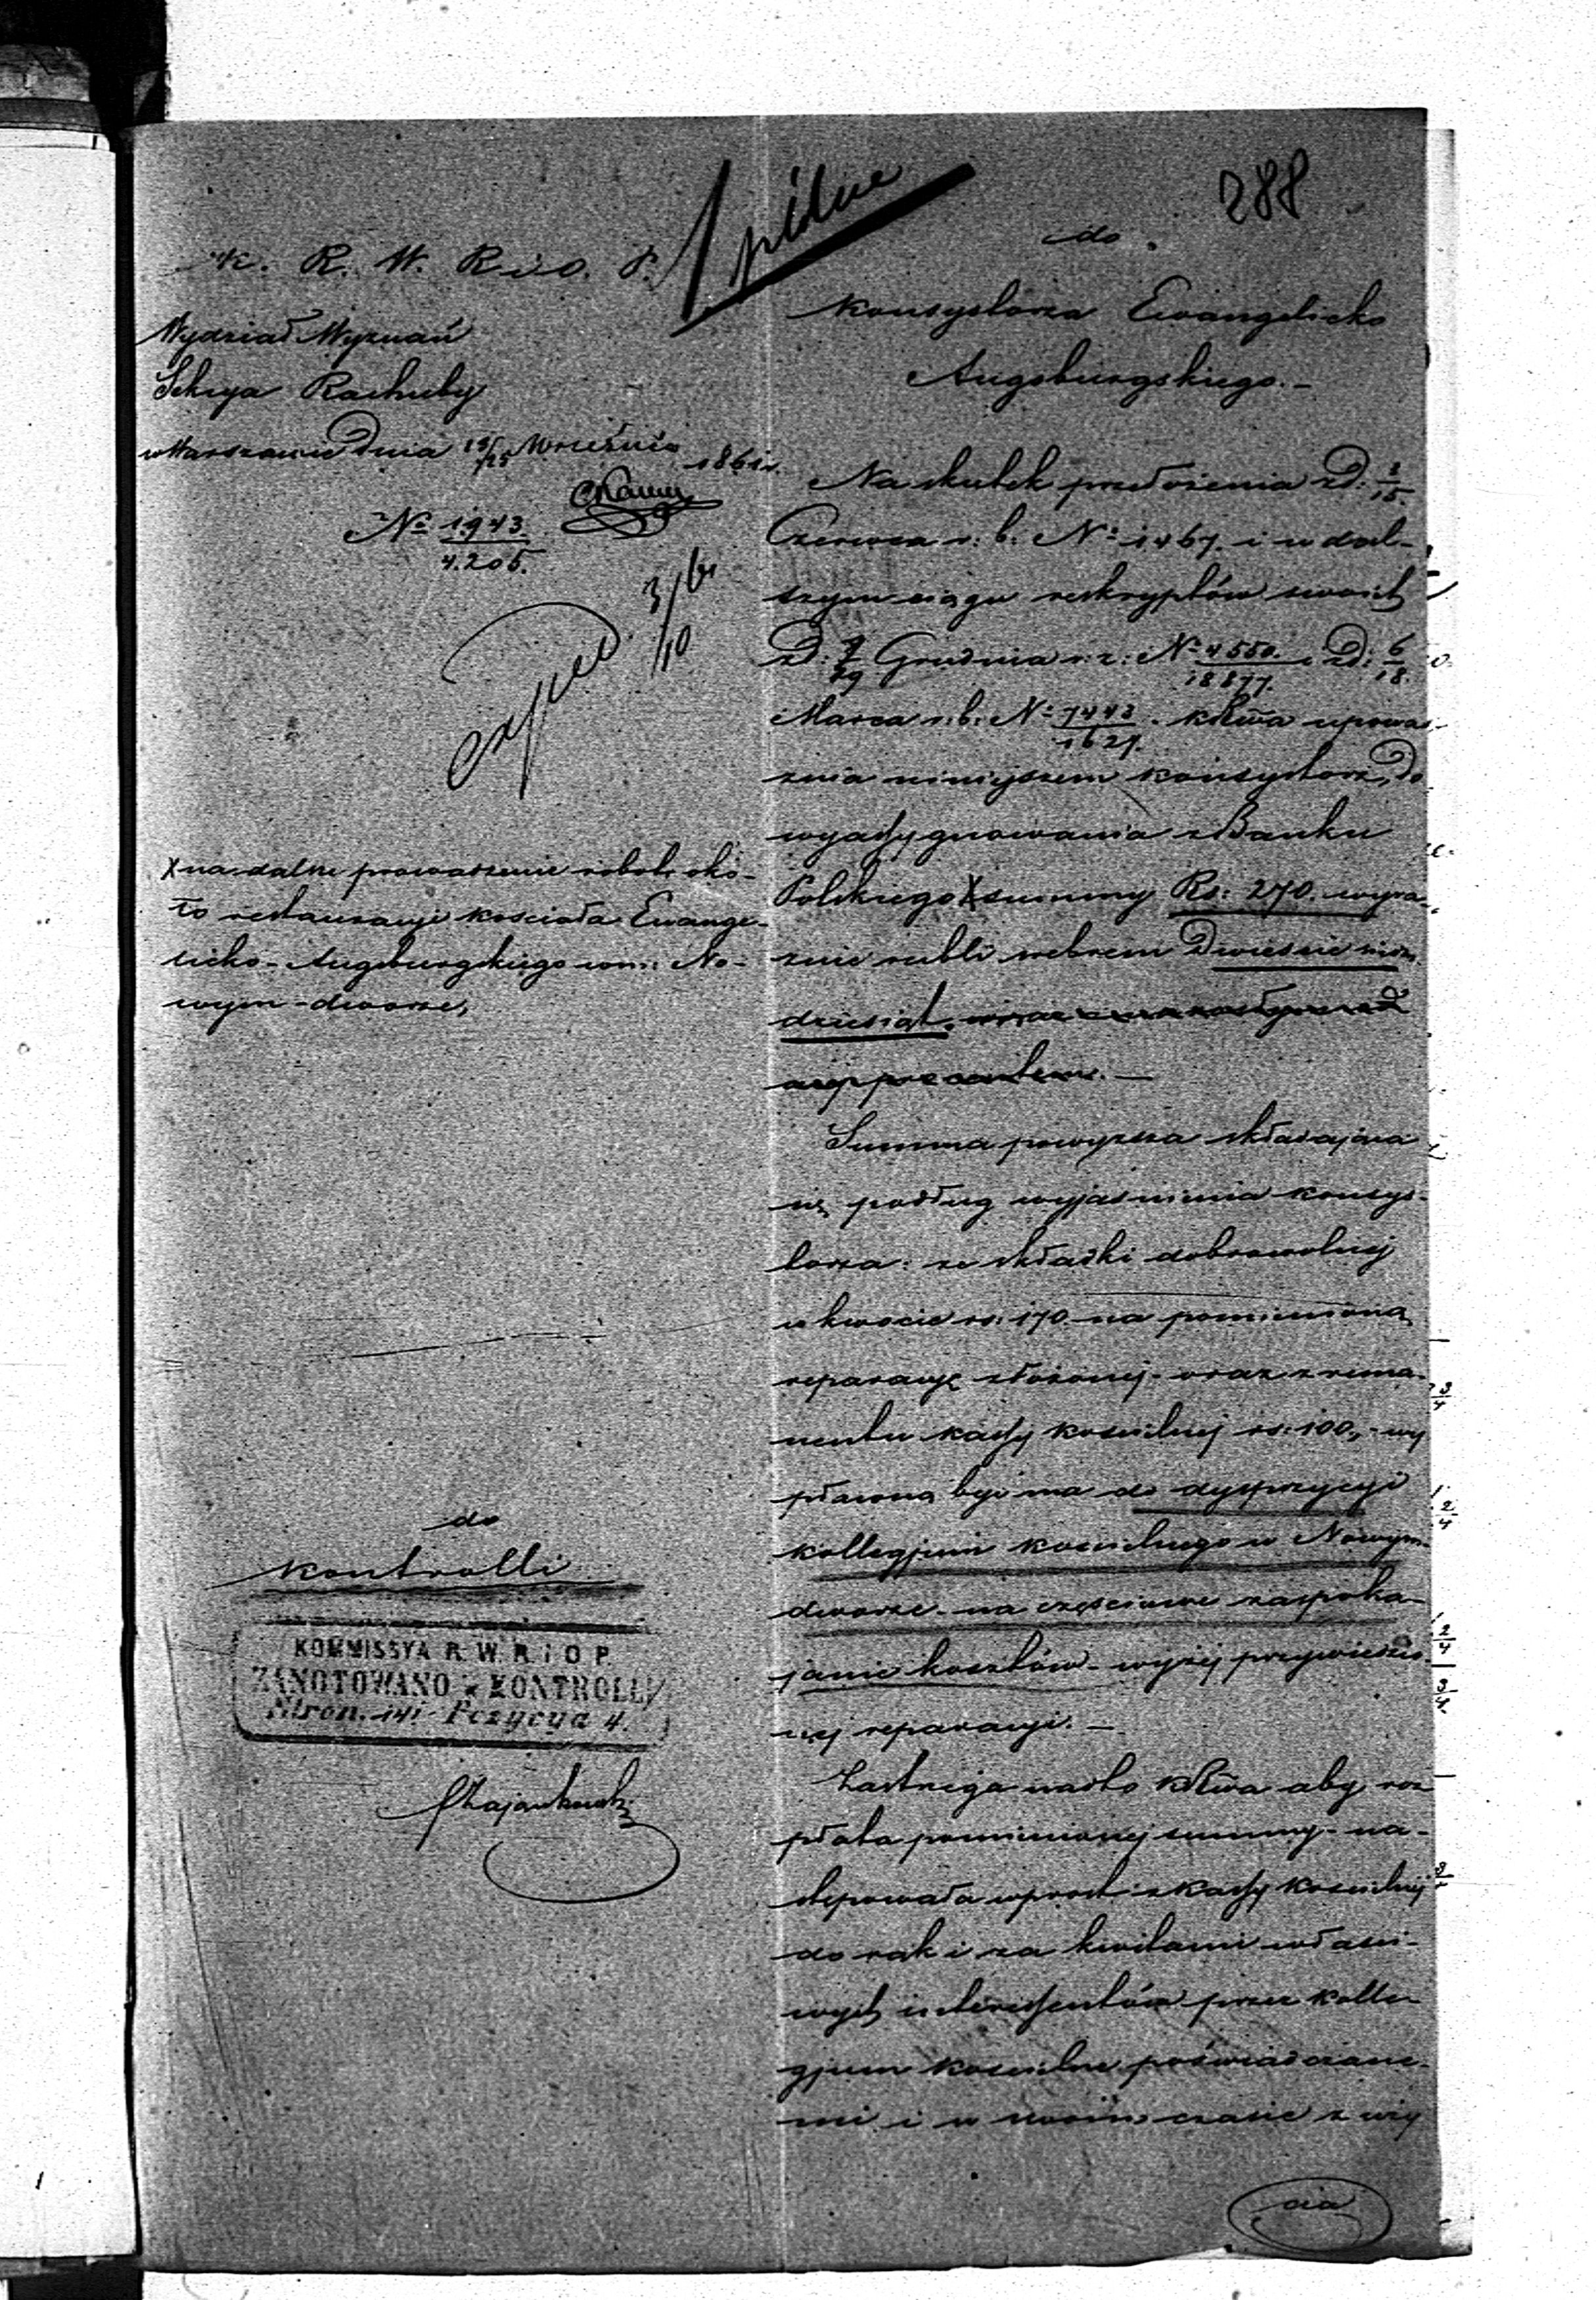 288
pilne
K. R. W. R. i O. P.
Wydział Wyznań
Sekcya Rachuby
w Warszawie Dnia 13/25 Września 1861 r.
No 1943
4.205.
exped. 3/10 61
X na dalsze prowadzenie robót oko-
ło restauracyi kościoła Ewange-
licko-Augsburgskiego w m: No-
wym-dworze,
do
Kontrolli
KOMMISSYA R. W. R. i O P.
ZANOTOWANO w KONTROLLI
Stron. 141 Pozycya 4.
do
Konsystorza Ewangelicko
Augsburgskiego.-
Na skutek przełożenia z D: 3/15
Czerwca r: b: No 1467. i w dal-
szym ciągu reskryptów swoich
z D: /29 Grudnia r: z: No 4550/18877. i z D: 6/18
Marca r: b: No 1443/1627. KRwa upowa-
żnia niniejszem Konsystorz, do
wyassygnowania z Banku
Polskiego X summy Rs: 270. wyra-
źnie rubli srebrem Dwieście siedm-
dziesiąt.
Summa powyższa składająca
się podług wyjaśnienia Konsys-
torza: ze składki dobrowolnej
w kwocie rs: 170. na pomienioną
reparacyę złożonej - oraz z rema-
nentu kassy kościelnej rs: 100, - wy
płaconą być ma do dyspozycyi
Kollegjum kościelnego w Nowym-
dworze - na częściowe zaspoka-
janie kosztów - wyżej przywiedzio-
nej reparacyi. -
Zastrzega nadto KRwa aby wy
płata pomienionej summy - na-
stępowała wprost z kassy kościelnej
do rąk i za kwitami właści-
wych interessentów przez Kolle-
gjum kościelne poświadczone-
mi i w swoim czasie z wię
cia